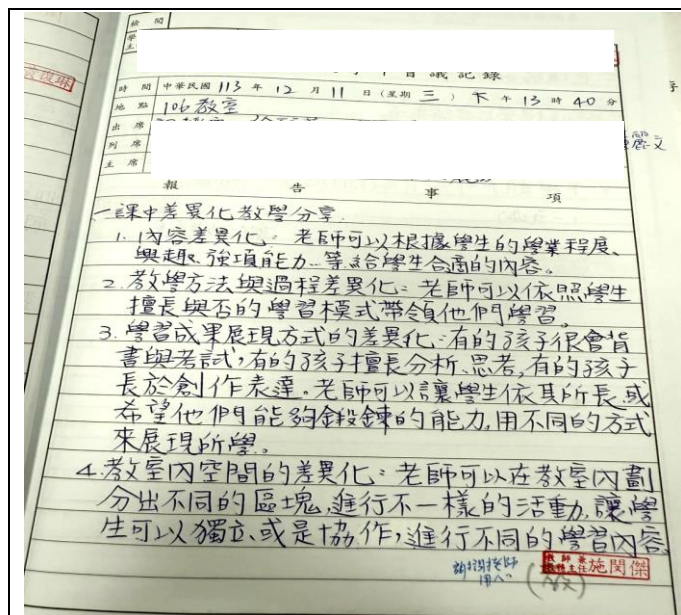 檢閱
會議記錄
時間 中華民國 113 年 12 月 11 日 (星期 三) 下午 13 時 40 分
地點 106教室
出席
列席
主席
報告事項
一 課中差異化教學分享.
1. 內容差異化: 老師可以根據學生的學業程展、
興趣、強項能力…等,給學生合適的內容。
2. 教學方法與過程差異化: 老師可以依照學生
擅長與否的學習模式帶領他們學習。
3. 學習成果展現方式的差異化: 有的孩子很會背
書與考試, 有的孩子擅長分析、思考, 有的孩子
長於創作表達。老師可以讓學生依其所長, 或
希望他們能夠鍛鍊的能力, 用不同的方式
來展現所學。
4. 教室內空間的差異化: 老師可以在教室內劃
分出不同的區塊, 進行不一樣的活動, 讓學
生可以獨立、或是協作, 進行不同的學習內容。
謝謝老師
用心
教師兼教務主任 施閔傑